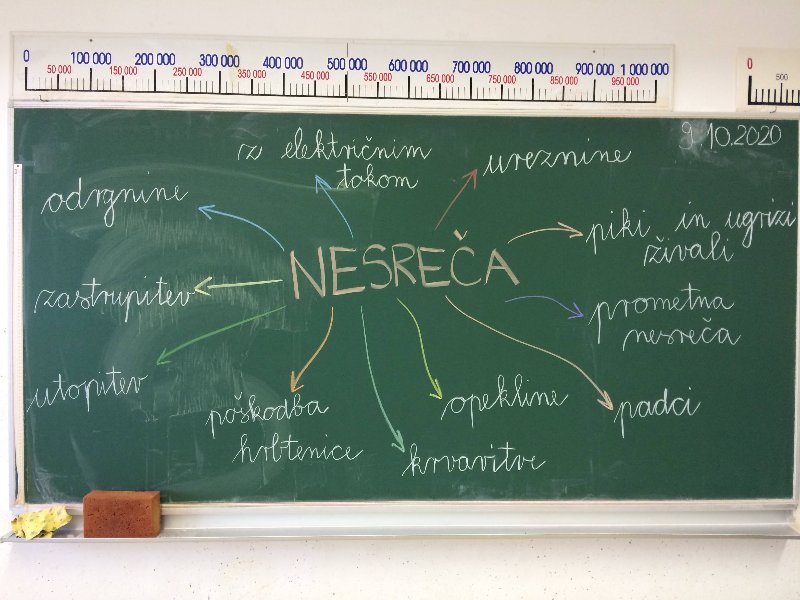 0 100 000 200 000 300 000 400 000 500 000 600 000 700 000 800 000 900 000 1 000 000
50 000 150 000 250 000 350 000 450 000 550 000 650 000 750 000 850 000 950 000
0 500
9.10.2020
z električnim
tokom
ureznine
odrgnine
piki in ugrizi
živali
NESREČA
zastrupitev
prometna
nesreča
utopitev
poškodba
hrbtenice
opekline
padci
krvavitve